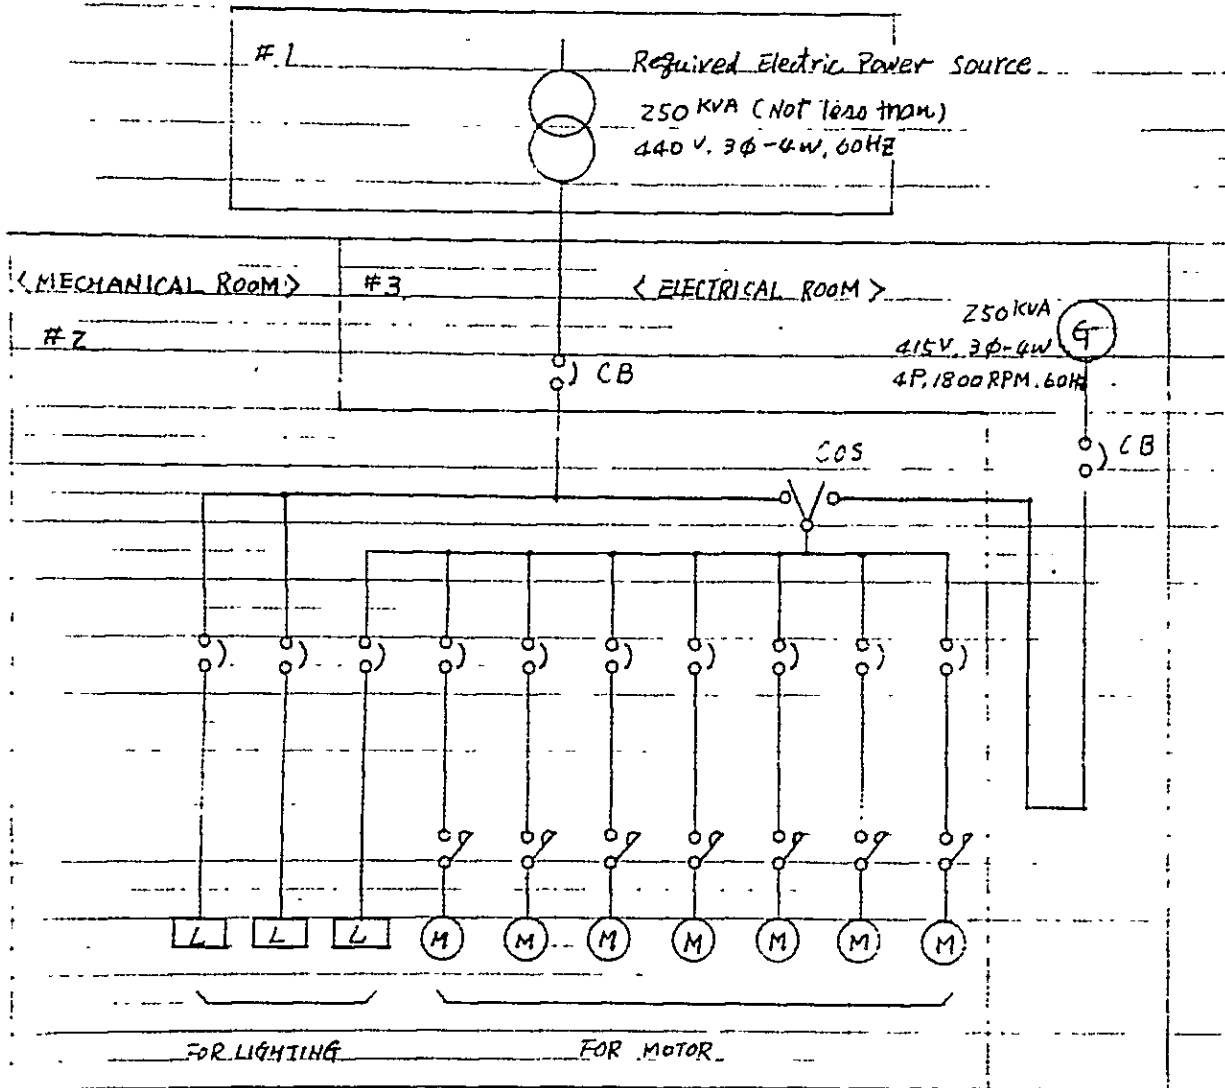 # 1
Required Electric Power source
250 KVA (Not less than)
440 V. 3φ-4W, 60HZ
<MECHANICAL ROOM>
#3
<ELECTRICAL ROOM>
#2
250 KVA
415V. 3φ-4W
4P, 1800 RPM. 60Hz
G
CB
CB
COS
L
L
L
M
M
M
M
M
M
M
FOR LIGHTING
FOR MOTOR